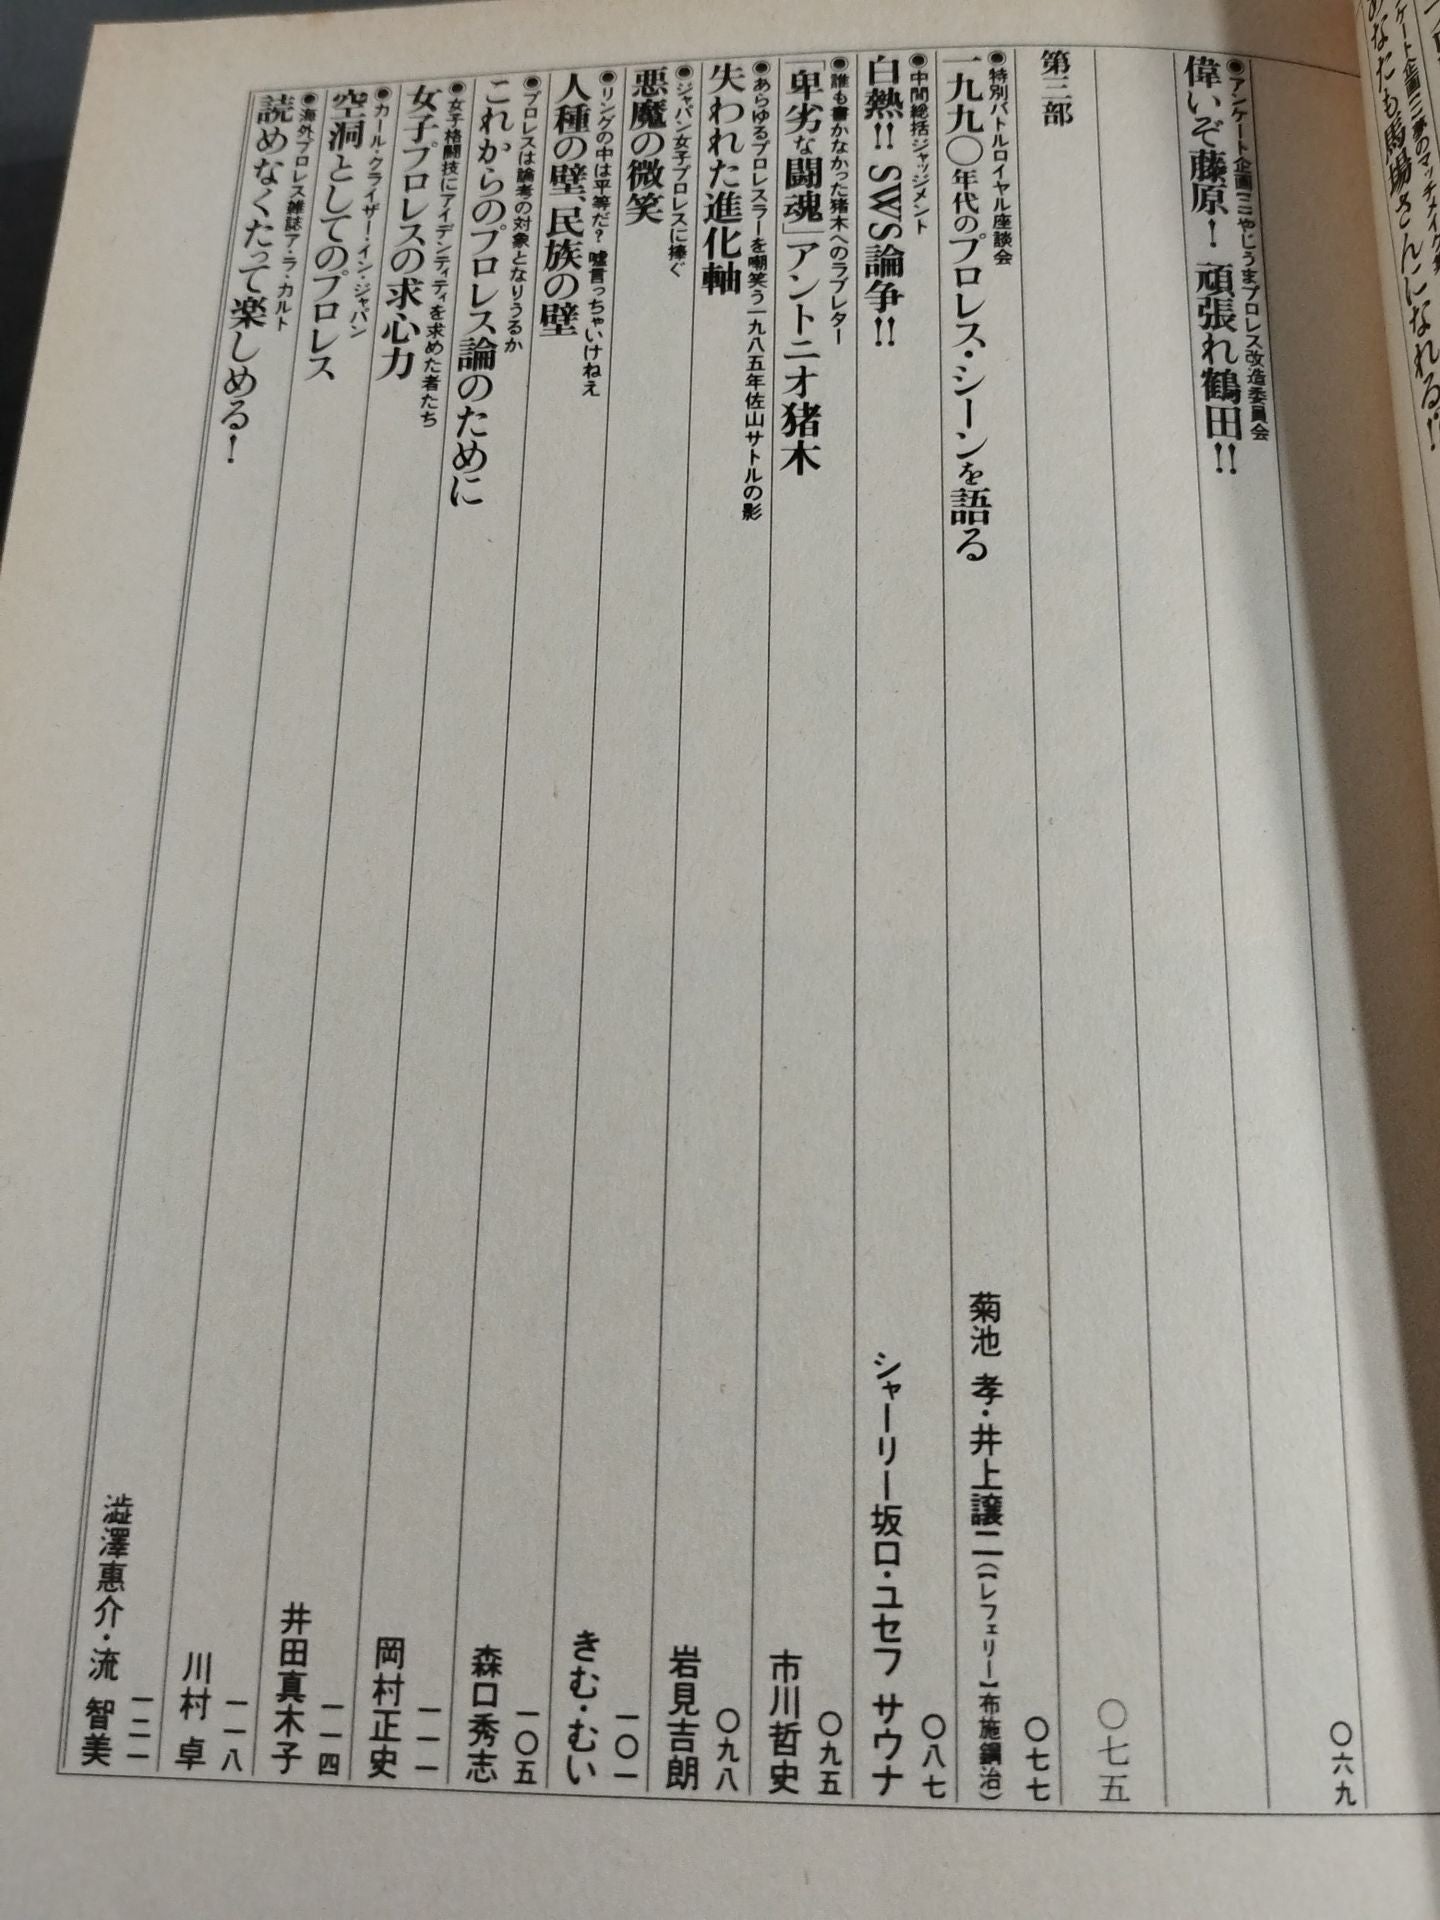 あなたも馬場さんになれる!!
◉アンケート企画二 やじうまプロレス改造委員会
偉いぞ藤原！ 頑張れ鶴田!!
〇六九
第三部
〇七五
◉特別バトルロイヤル座談会
一九九〇年代のプロレス・シーンを語る
菊池 孝・井上譲二(【レフェリー】布施鋼治)
〇七七
◉中間総括ジャッジメント
白熱!! SWS論争!!
シャーリー坂口・ユセフ サウナ
〇八七
◉誰も書かなかった猪木へのラブレター
「卑劣な闘魂」アントニオ猪木
市川哲史
〇九五
◉あらゆるプロレスラーを嘲笑う一九八五年佐山サトルの影
失われた進化軸
岩見吉朗
〇九八
◉ジャパン女子プロレスに捧ぐ
悪魔の微笑
きむ・むい
一〇一
◉リングの中は平等だ？ 嘘言っちゃいけねえ
人種の壁、民族の壁
森口秀志
一〇五
◉プロレスは論考の対象となりうるか
これからのプロレス論のために
岡村正史
一一一
◉女子格闘技にアイデンティティを求めた者たち
女子プロレスの求心力
井田真木子
一一四
◉カール・クライザー・イン・ジャパン
空洞としてのプロレス
川村 卓
一一八
◉海外プロレス雑誌ア・ラ・カルト
読めなくたって楽しめる！
澁澤恵介・流 智美
一二一